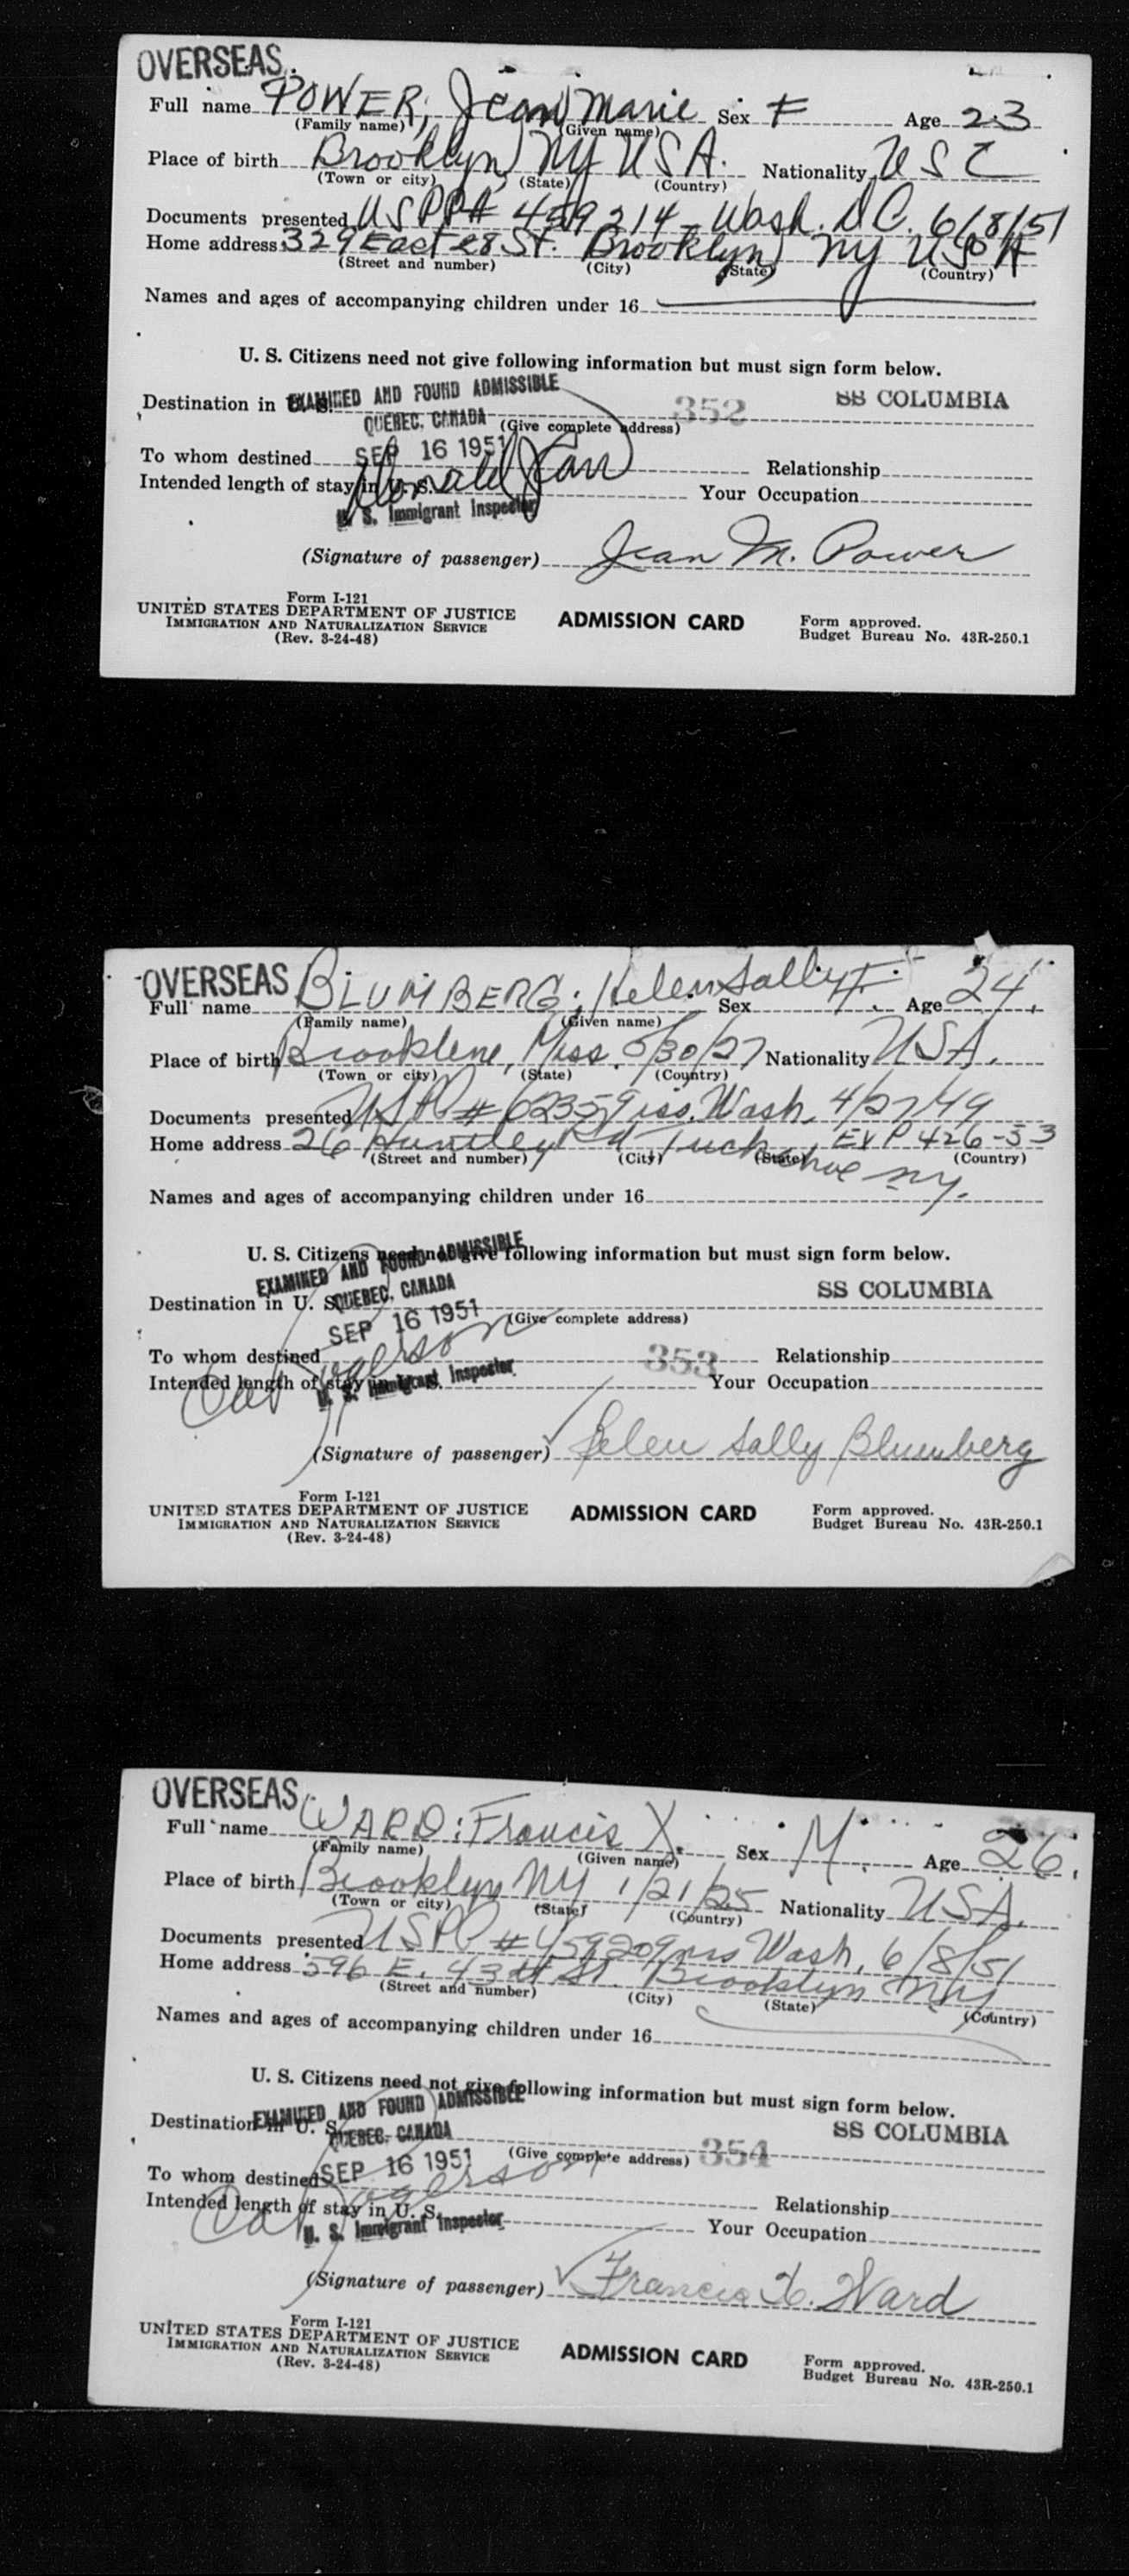 OVERSEAS
Full name POWER, Jean Marie Sex F Age 23
(Family name) (Given name)
Place of birth Brooklyn NY USA. Nationality USC
(Town or city) (State) (Country)
Documents presented USPP# 459214 - Wash. D.C. 6/8/51
Home address 329 East 28 St. Brooklyn NY USA
(Street and number) (City) (State) (Country)
Names and ages of accompanying children under 16
U. S. Citizens need not give following information but must sign form below.
EXAMINED AND FOUND ADMISSIBLE
SS COLUMBIA
Destination in 352
QUEBEC, CANADA (Give complete address)
SEP 16 1951
To whom destined Relationship
Intended length of stay in U. S. Your Occupation
U. S. Immigrant Inspector
(Signature of passenger) Jean M. Power
Form I-121
UNITED STATES DEPARTMENT OF JUSTICE ADMISSION CARD Form approved.
IMMIGRATION AND NATURALIZATION SERVICE Budget Bureau No. 43R-250.1
(Rev. 3-24-48)
OVERSEAS
Full name BLUMBERG; Helen Sally Sex F. Age 24.
(Family name) (Given name)
Place of birth Brookline, Mass. 5/30/27 Nationality USA.
(Town or city) (State) (Country)
Documents presented USPP # 62359 iss. Wash. 4/27/49
Home address 26 Huntley Rd Tuckahoe NY. EXP 4-26-53
(Street and number) (City) (State) (Country)
Names and ages of accompanying children under 16
U. S. Citizens need not give following information but must sign form below.
EXAMINED AND FOUND ADMISSIBLE
SS COLUMBIA
Destination in U. S.
QUEBEC, CANADA
SEP 16 1951 (Give complete address)
To whom destined 353 Relationship
Intended length of stay in U. S. Your Occupation
U. S. Immigrant Inspector
(Signature of passenger) Helen Sally Blumberg
Form I-121
UNITED STATES DEPARTMENT OF JUSTICE ADMISSION CARD Form approved.
IMMIGRATION AND NATURALIZATION SERVICE Budget Bureau No. 43R-250.1
(Rev. 3-24-48)
OVERSEAS
Full name WARD: Francis X. Sex M. Age 26.
(Family name) (Given name)
Place of birth Brooklyn NY 1/21/25 Nationality USA.
(Town or city) (State) (Country)
Documents presented USPP #459209 iss Wash. 6/8/51
Home address 596 E. 43rd St. Brooklyn NY
(Street and number) (City) (State) (Country)
Names and ages of accompanying children under 16
U. S. Citizens need not give following information but must sign form below.
EXAMINED AND FOUND ADMISSIBLE
SS COLUMBIA
Destination in U. S.
QUEBEC, CANADA
(Give complete address) 354
To whom destined SEP 16 1951 Relationship
Intended length of stay in U. S. Your Occupation
U. S. Immigrant Inspector
(Signature of passenger) Francis X. Ward
Form I-121
UNITED STATES DEPARTMENT OF JUSTICE ADMISSION CARD Form approved.
IMMIGRATION AND NATURALIZATION SERVICE Budget Bureau No. 43R-250.1
(Rev. 3-24-48)